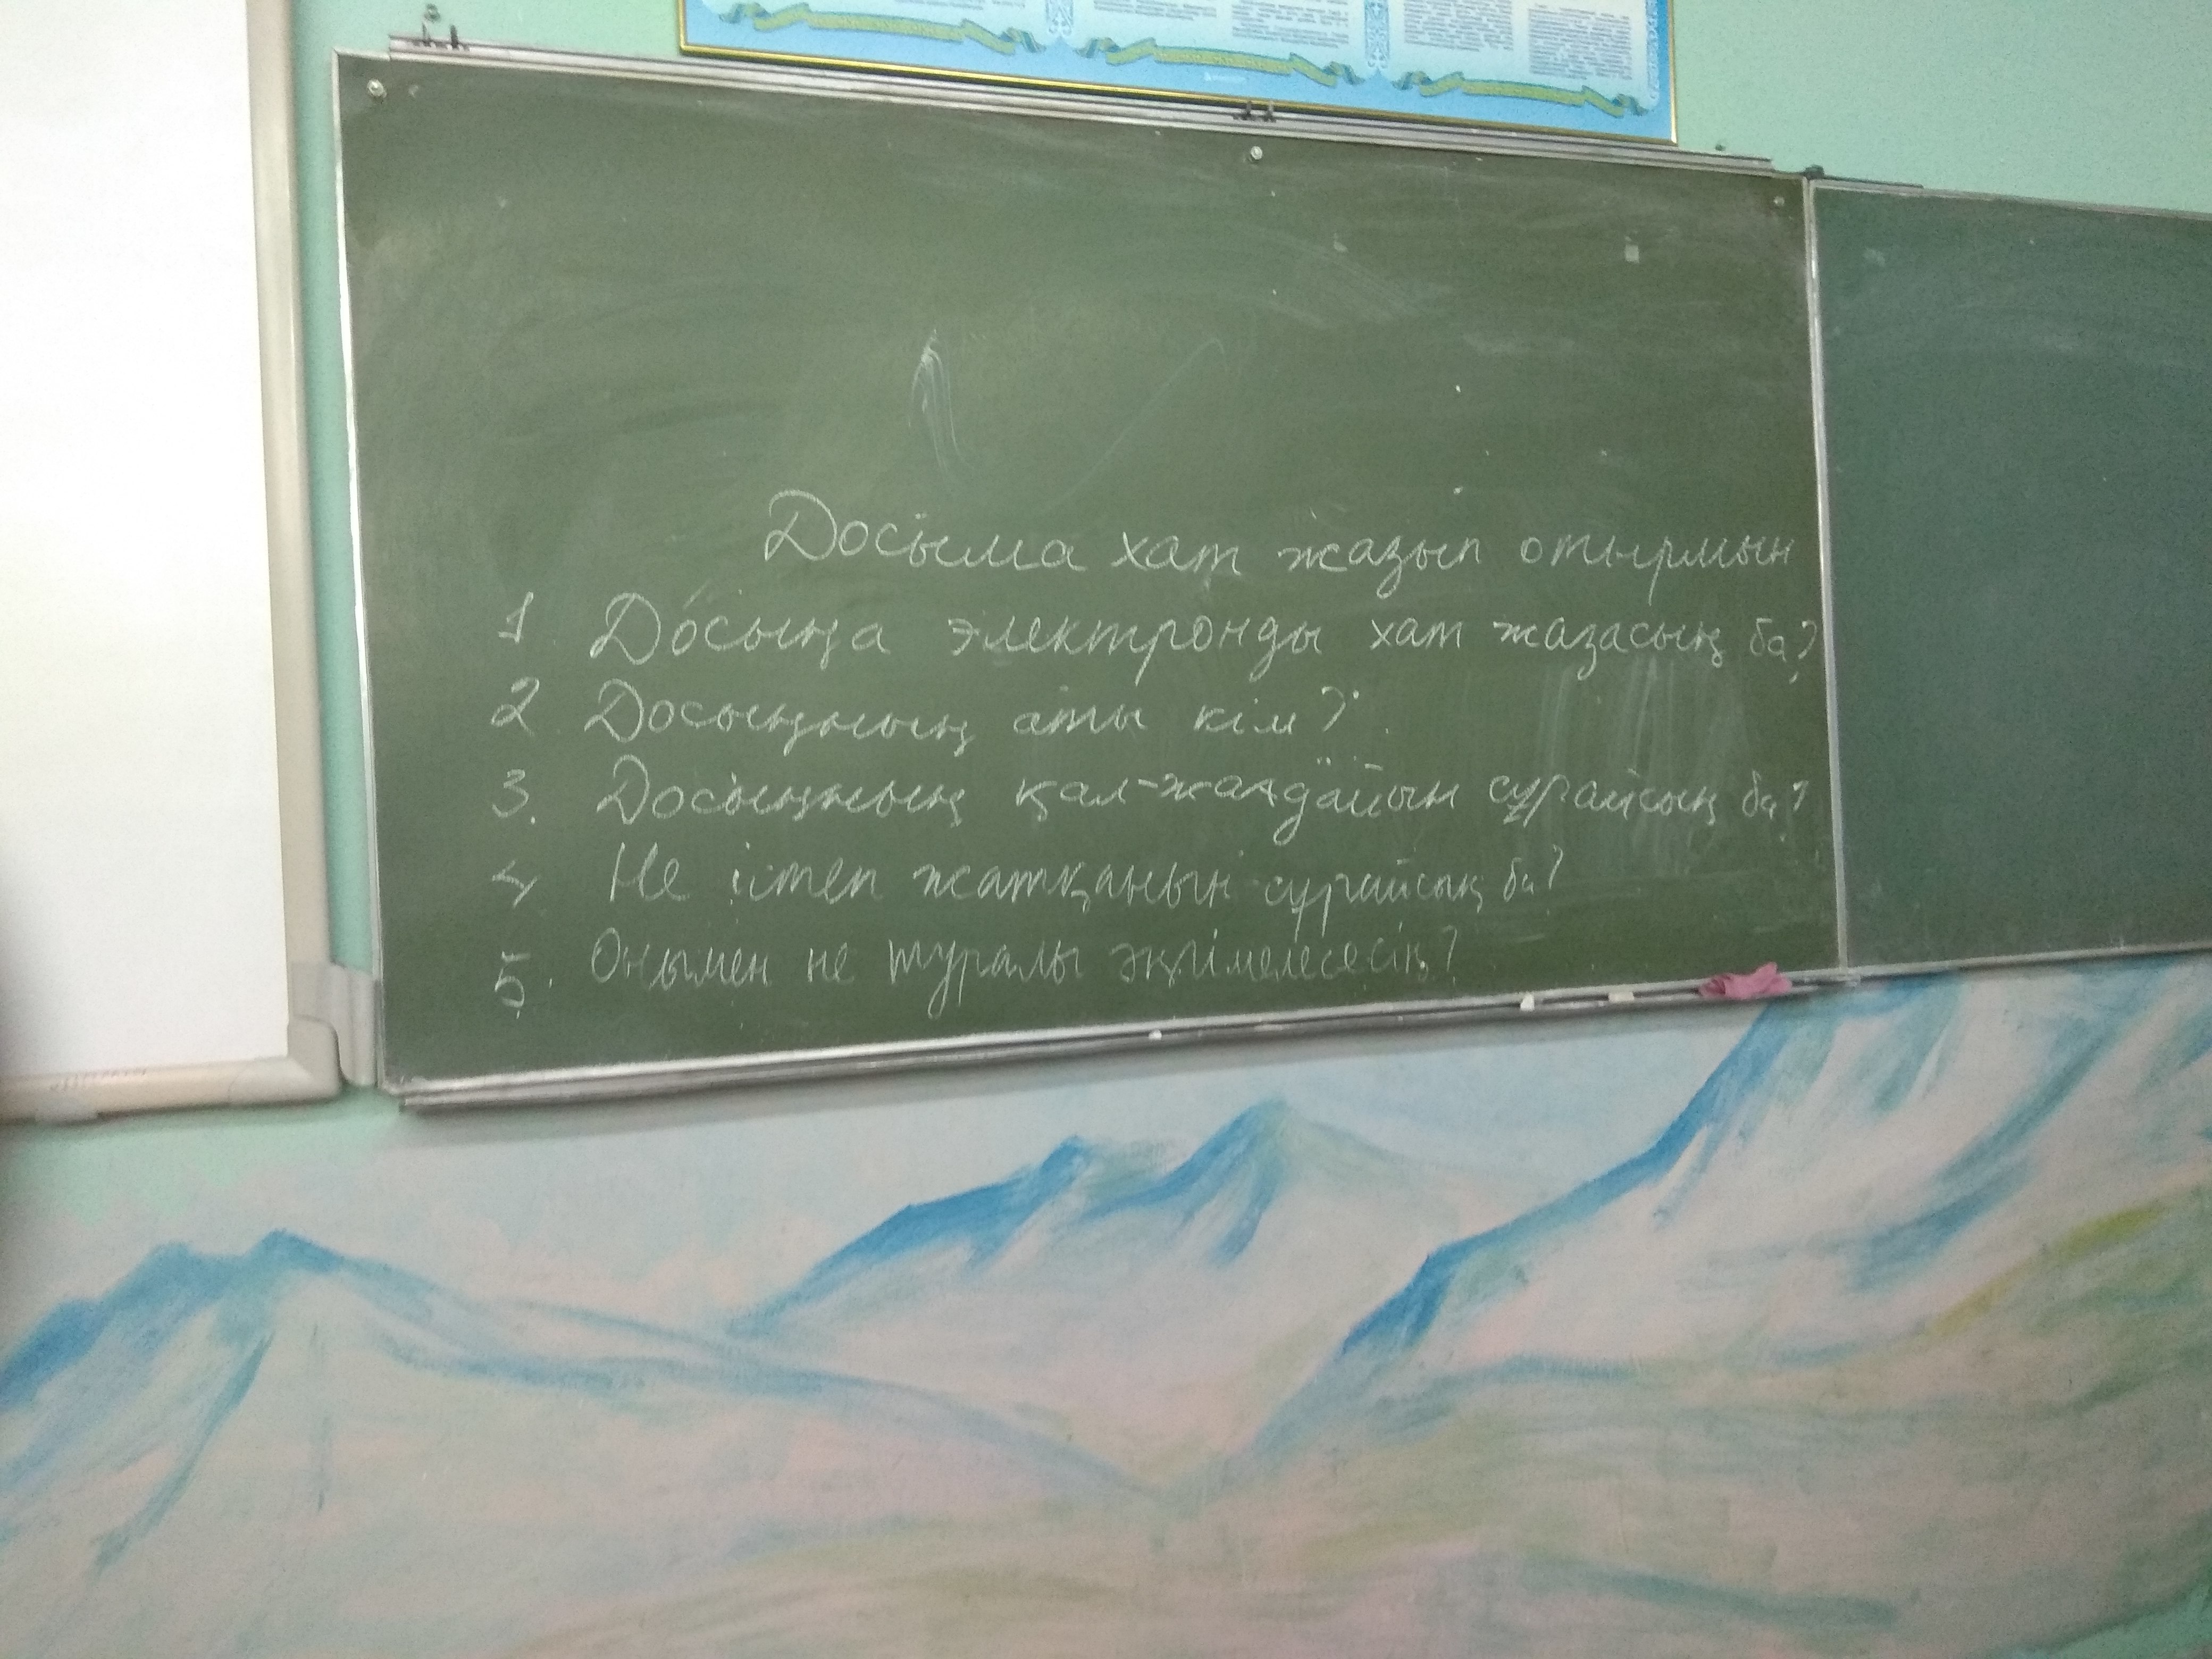 Досыма хат жазып отырмын
1 Досыңа электронды хат жазасың ба?
2 Досыңның аты кім?
3. Досыңның қал-жағдайын сұрайсың ба?
4 Не істеп жатқанын сұрайсың ба?
5. Онымен не туралы әңгімелесесің?